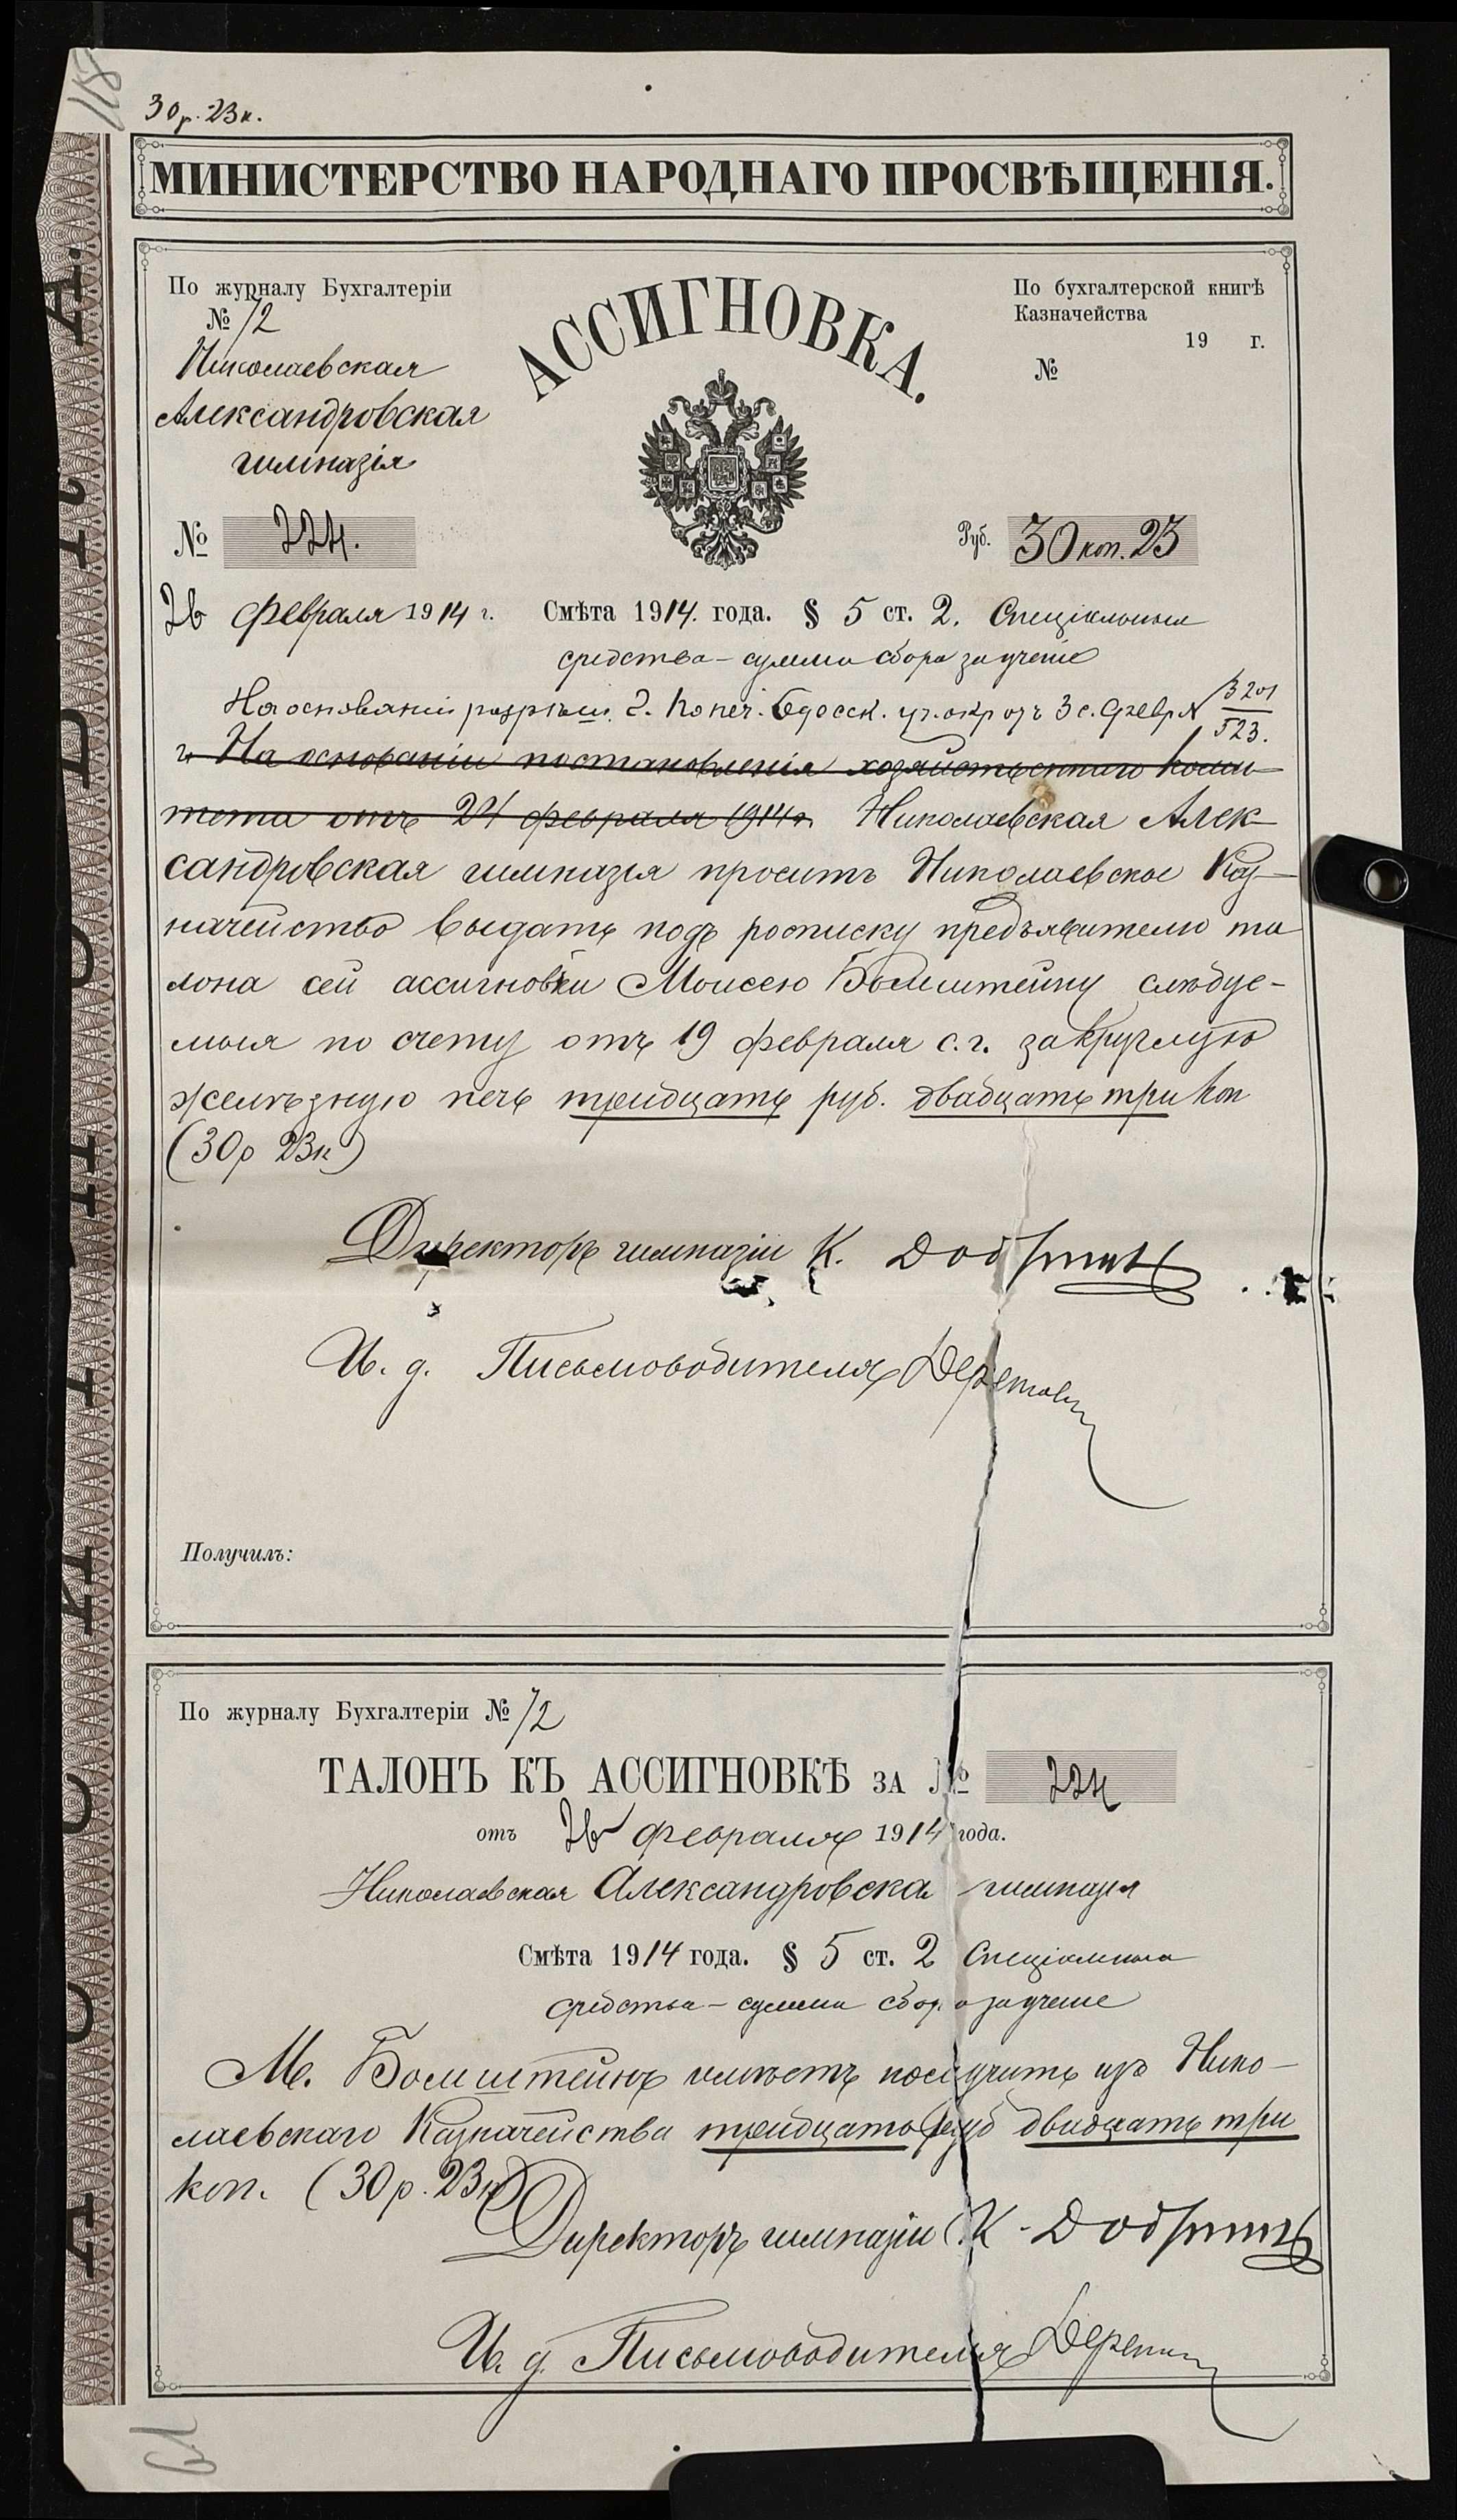 118
30 р. 23 к.
МИНИСТЕРСТВО НАРОДНАГО ПРОСВѢЩЕНІЯ.
По журналу Бухгалтеріи
№ 72
Николаевская
Александровская
гимназія
АССИГНОВКА.
По бухгалтерской книгѣ
Казначейства
19 г.
№
№ 224.
Руб. 30 коп. 23
26 февраля 1914 г. Смѣта 1914. года. § 5 ст. 2. Спеціальныя
средства – суммы сбора за ученіе
На основаніи разрѣш. Г. Попеч. Одесск. уч. окр отъ 3 с. Февр №
3201
523.
г. На основаніи постановленія хозяйственнаго коми-
тета отъ 24 февраля 1914 г. Николаевская Алек-
сандровская гимназія проситъ Николаевское Каз-
начейство выдать подъ росписку предъявителю та
лона сей ассигновки Моисею Бомштейну слѣдуе-
мыя по счету отъ 19 февраля с.г. за круглую
желѣзную печь тридцать руб. двадцать три коп
(30 р 23 к)
Директоръ гимназіи К.
И. д. Письмоводителя
Получилъ:
По журналу Бухгалтеріи № 72
ТАЛОНЪ КЪ АССИГНОВКѢ ЗА № 224
отъ 26 февраля 1914 года.
Николаевская Александровска гимназія
Смѣта 1914 года. § 5 ст. 2 Спеціальныя
средства – суммы сбора за ученіе
М. Бомштейнъ имѣетъ получить изъ Нико-
лаевскаго Казначейства тридцать руб двадцать три
коп. (30 р. 23 к)
Директоръ гимназіи К.
И. д. Письмоводителя
61